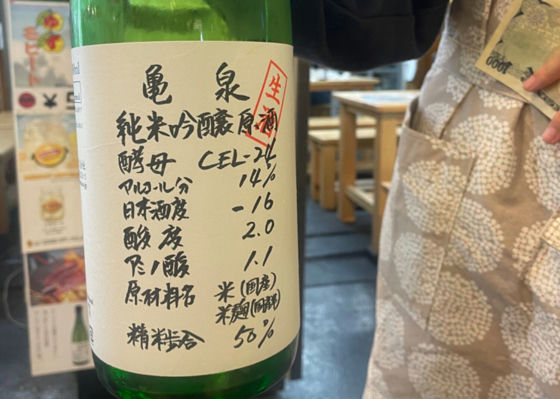 亀泉
生酒
純米吟醸原酒
酵母 CEL-24
アルコール分 14%
日本酒度 -16
酸度 2.0
アミノ酸 1.1
原材料名 米(国産)
米麹(国産米)
精米歩合 50%
1000